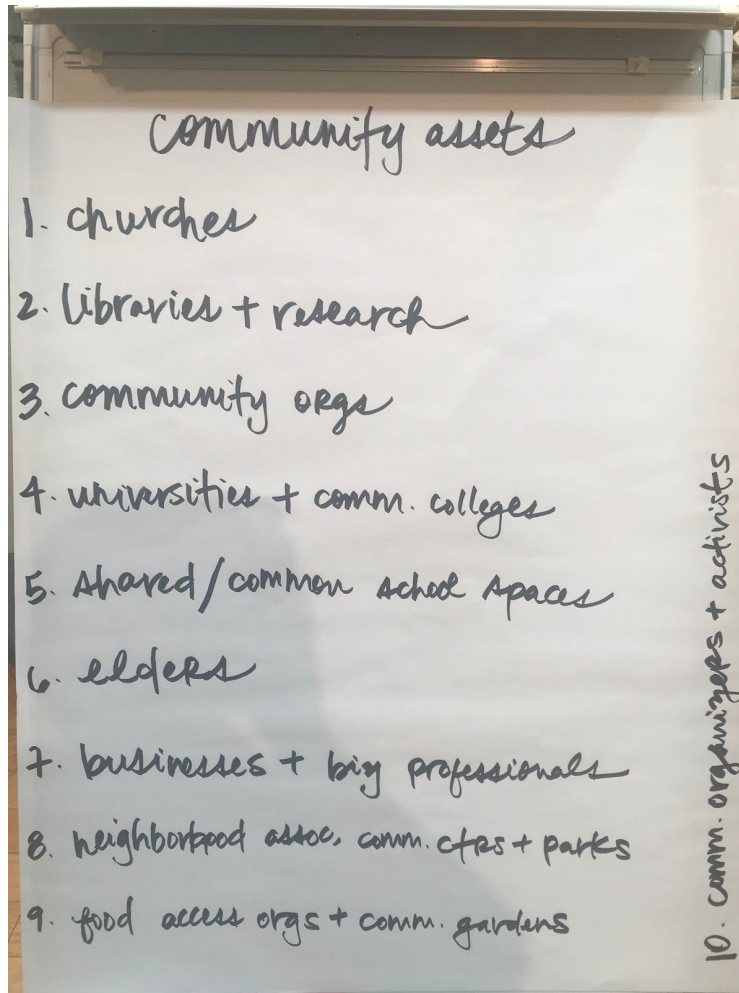 community assets
1. churches
2. libraries + research
3. community orgs
4. universities + comm. colleges
5. shared/common school spaces
6. elders
7. businesses + biz professionals
8. neighborhood assoc, comm. ctrs + parks
9. food access orgs + comm. gardens
10. comm. organizers + activists